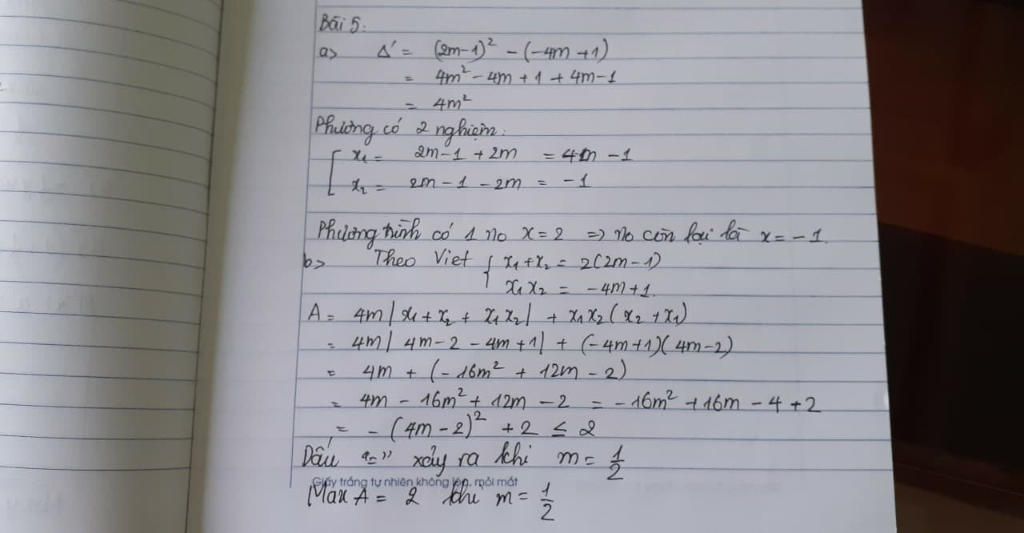 Bài 5:
a> Δ' = (2m-1)² - (-4m+1)
= 4m² - 4m + 1 + 4m - 1
= 4m²
Phương có 2 nghiệm:
[ x₁ = 2m-1 + 2m = 4m - 1
x₂ = 2m - 1 - 2m = -1
Phương trình có 1 no x = 2 => no còn lại là x = -1.
b> Theo Viet { x₁+x₂ = 2(2m-1)
x₁x₂ = -4m+1.
A = 4m| x₁ + x₂ + x₁x₂| + x₁x₂(x₂ + x₁)
= 4m| 4m-2 - 4m+1| + (-4m+1)(4m-2)
= 4m + (-16m² + 12m - 2)
= 4m - 16m² + 12m - 2 = -16m² + 16m - 4 + 2
= -(4m-2)² + 2 ≤ 2
Dấu "=" xảy ra khi m = 1/2
Giấy trắng tự nhiên không lóa, mỏi mắt
Max A = 2 khi m = 1/2